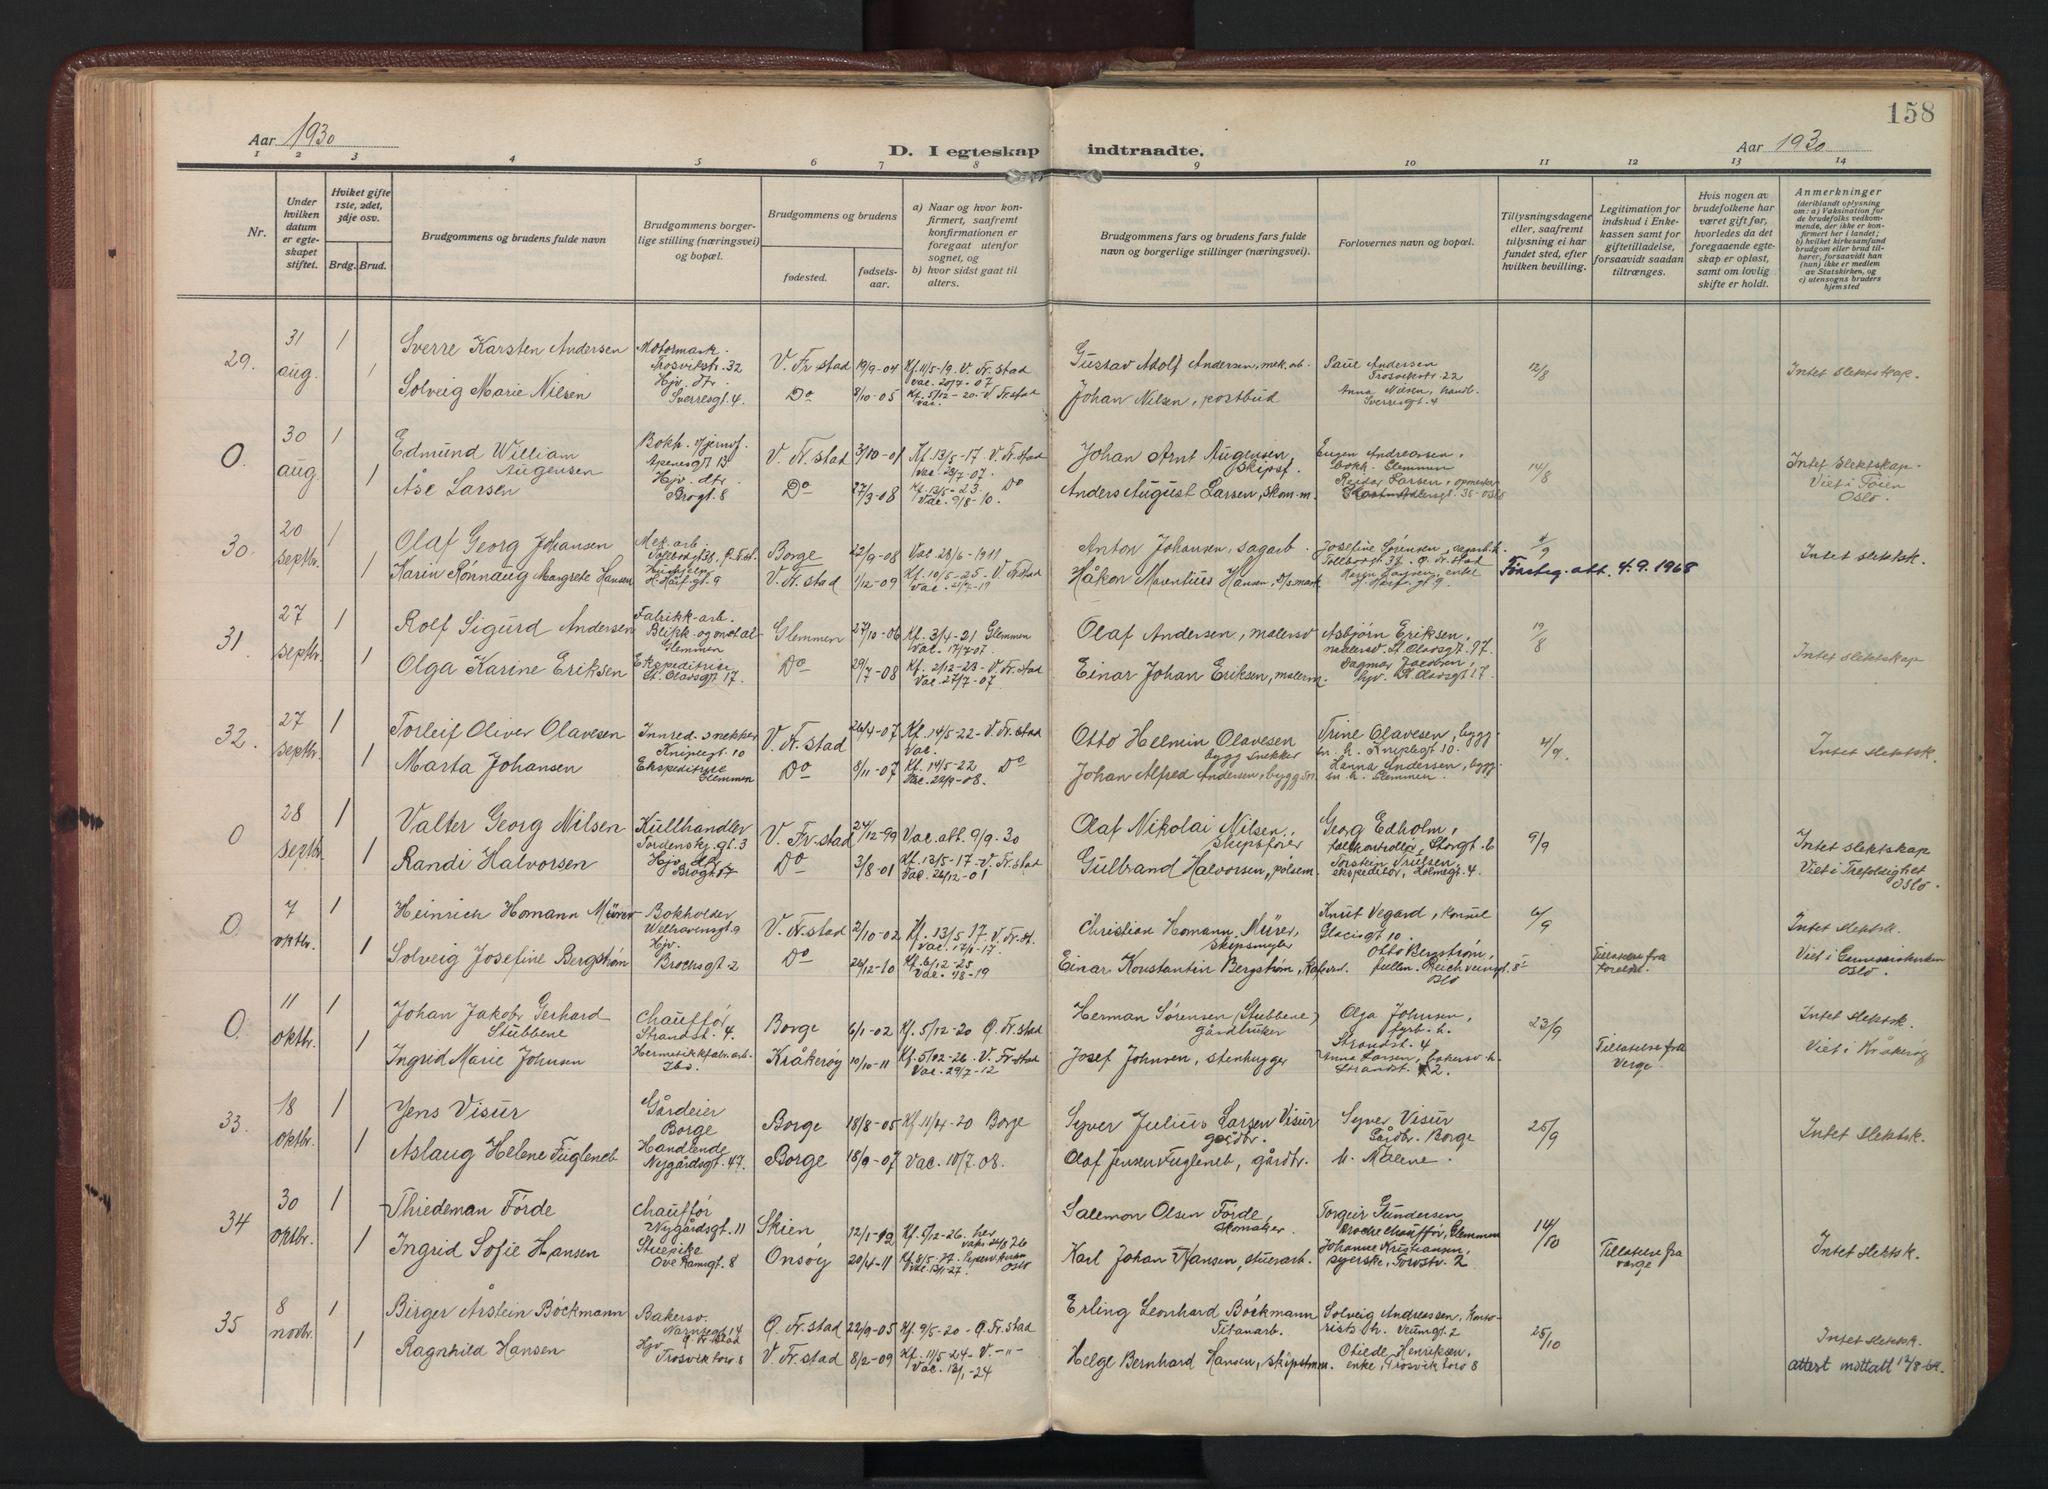 158
Aar 1930
D. I egteskap indtraadte.
Aar 1930
1 2 3 4 5 6 7 8 9 10 11 12 13 14
Nr.
Under hvilken datum er egteskapet stiftet.
Hviket gifte 1ste, 2det, 3dje osv.
Brdg. Brud.
Brudgommens og brudens fulde navn
Brudgommens borgerlige stilling (næringsvei) og bopæl.
Brudgommens og brudens
fødested.
fødselsaar.
a) Naar og hvor konfirmert, saafremt konfirmationen er foregaat utenfor sognet, og
b) hvor sidst gaat til alters.
Brudgommens fars og brudens fars fulde navn og borgerlige stillinger (næringsvei).
Forlovernes navn og bopæl.
Tillysningsdagene eller, saafremt tillysning ei har fundet sted, efter hvilken bevilling.
Legitimation for indskud i Enkekassen samt for giftetilladelse, forsaavidt saadan tiltrænges.
Hvis nogen av brudefolkene har været gift før, hvorledes da det foregaaende egteskap er opløst, samt om lovlig skifte er holdt.
Anmerkninger
(deriblandt oplysning om: a) Vaksination for de brudefolks vedkommende, der ikke er konfirmert her i landet; b) hvilket kirkesamfund brudgom eller brud tilhører, forsaavidt han (hun) ikke er medlem av Statskirken, og c) utensogns bruders hjemsted
29. 31 aug. 1 Sverre Karsten Andersen Motormask. Trosvikstr. 32 V. Fr.stad 19/9-04 Kf. 11/5-19. V. Fr.stad Vac. 20/7-07 Gustav Adolf Andersen, mek. arb. Paul Andersen Trosvikstr. 22 12/8 Intet slektskap.
1 Solveig Marie Nilsen Hjv. dtr. Sverresgt. 4. Do 8/10-05 Kf. 5/12-20-V. Fr.stad Vac. Johan Nilsen, postbud Anna Nilsen, handl. Sverresgt. 4
0. 30 aug. 1 Edmund William Augensen Bokh. Apenesgt 13 V. Fr.stad 3/10-01 Kf. 13/5-17. V. Fr.stad Vac. 23/7-07. Johan Arnt Augensen, Skipsf. Eugen Andreassen, bokh. Glemmen 14/8 Intet Slektskap.
1 Åse Larsen Hjv. dtr. Brogt. 8 Do 27/3-08 Kf. 13/5-23 Do Vac. 9/8-10. Anders August Larsen, skom.m. Reidar Larsen, Oslo Viet i Tøien Oslo.
30. 20 septbr. 1 Olaf Georg Johansen Mek. arb. Tollbodgt 38, Ø. Fr.st. Borge 22/9-08 Vac. 28/6-1911 Anton Johansen, sagarb. Josefine Sørensen, sagarb. h. Tollbodgt 38. Ø. Fr. stad 4/9 Intet slektsk.
1 Karin Rønnaug Margrete Hansen V. Fr.stad 1/12-09 Kf. 10/5-25. V. Fr.stad Vac. Håkon Mauritius Hansen, D/smask. enke gt 9 att. 4.9.1968
31. 27 septbr. 1 Rolf Sigurd Andersen Fabrikk-arb. Blikk- og metal- Glemmen Glemmen 27/10-06 Kf. 3/4-21 Glemmen Vac. 17/7-07. Olaf Andersen, malersv Asbjørn Eriksen, malersv. St. Olavsgt. 17. 19/8 Intet Slektskap
1 Olga Karine Eriksen Ekspeditrise St. Olavsgt 17. Do 29/7-08 Kf. 2/12-23-V. Fr.stad Vac. 27/7-07 Einar Johan Eriksen, malerm. Dagmar Jacobsen, hjv. St. Olavsgt 17.
32. 27 septbr. 1 Torleif Oliver Olavesen Innred. snekker Kniplegt. 10 V. Fr.stad 26/4-07 Kf. 14/5-22-V. Fr.stad Vac. Otto Helmin Olavesen bygg snekker Trine Olavesen, bygg sn. h. Kniplegt 10. 4/9. Intet slektsk.
1 Marta Johansen Ekspeditrise Glemmen Do 8/11-07 Kf. 14/5-22 Do Vac. 22/9-08. Johan Alfred Andersen, bygg sn. Hanna Andersen, bygg sn. h. Glemmen.
0 28 septbr. 1 Valter Georg Nilsen Kullhandler Tordenskj. gt. 3 V. Fr.stad 24/12-99 Vac. att. 9/9.30 Olaf Nikolai Nilsen, Skipsfører Georg Edholm, Storgt. 6 9/9 Intet slektskap
1 Randi Halvorsen Hjv. dtr. Brogt. 17 Do 3/8-01 Kf. 13/5-17-V. Fr.stad Vac. 26/12-01 Gulbrand Halvorsen, pølsem. Torstein Trulsen, ekspeditør, Holmegt. 4. Viet i Trefoldighet Oslo.
0. 7 oktbr. 1 Heinrich Homann Mürer Bokholder Welhavensgt. 9 V. Fr.stad 2/10-02 Kf. 13/5 17. V. Fr.st. Vac. Christian Homann Mürer, skipsmegler Knut Vegard, konsul Glacisgt 10. 6/9 Intet slektsk.
1 Solveig Josefine Bergstrøm Hjv. Brochsgt. 2 Do 26/12-10 Kf. 6/12-25 Vac. 1/8-19 Einar Konstantin Bergstrøm, Otto Bergstrøm, Oslo Tillatelse fra foreldre. Viet i Oslo.
0. 11 oktbr. 1 Johan Jakob Gerhard Stubbene Chauffør Strandst. 4. Borge 6/1-02 Kf. 5/12-20 Ø. Fr.stad Herman Sørensen (Stubbene) gårdbruker Olga Johnsen, fyrb. h. Strandst. 4 23/9 Intet slektsk.
1 Ingrid Marie Johnsen Hermetikkfabr. arb. Ibd. Kråkerøy 10/10-11 Kf. 5/12-26. V. Fr.stad Vac. 29/7-12 Josef Johnsen, stenhugger Anna Larsen, bakersv. h. Strandst. 2. Tillatelse fra verge Viet i Kråkerøy
33. 18 oktbr. 1 Jens Visur Gårdeier Borge Borge 18/8-05 Kf. 11/4-20 Borge Syver Julius Larsen Visur gårdbr. Syver Visur Gårdbr. Borge 25/9 Intet slektsk.
1 Aslaug Helene Fugleneb Handlende Nygårdsgt. 47. Borge 18/9-07 Vac. 10/7.08. Olaf Jensen Fugleneb, gårdbr. u. Malene.
34 30 oktbr. 1 Thiedeman Førde Chauffør Nygårdsgt. 11 Skien 12/1-02 Kf. 5/12-26. her Salemon Olsen Førde, skomaker. Torgeir Gundersen, Chauffør, Glemmen 14/10
1 Ingrid Sofie Hansen Stuepike Ove Ramsgt. 8 Onsøy 20/4-11 Oslo Karl Johan Hansen, stuerarb. Johanne Kristiansen, syerske, Tordstr. 2 Tillatelse fra værge Intet slektsk.
35 8 novbr. 1 Birger Arstein Böckmann Bakersv. Ø. Fr.stad Ø. Fr.stad 22/9-05 Kf. 9/5-20-Ø. Fr.stad Erling Leonhard Böckmann Titanarb. Solveig Andreassen, kontorists h. Veumgt. 2 25/10 Intet slektsk.
1 Ragnhild Hansen Hjv Trosvik torv 8 V. Fr.stad 8/2-09 Kf. 11/5-24-V. -"- Vac. 12/1-24 Helge Bernhard Hansen, skipstmm. Otiede Henriksen, enke, Trosvik torv 8 attest mottatt 12/8-64.